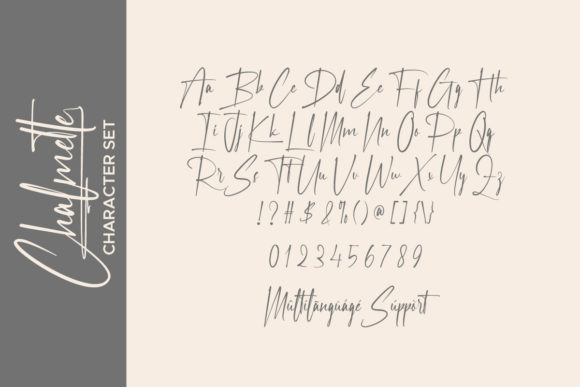 Chalmette
CHARACTER SET
Aa Bb Cc Dd Ee Ff Gg Hh
Ii Jj Kk Ll Mm Nn Oo Pp Qq
Rr Ss Tt Uu Vv Ww Xx Yy Zz
!?#$&%()@[]{\}
0123456789
Mûltîlãngúágé Súppört